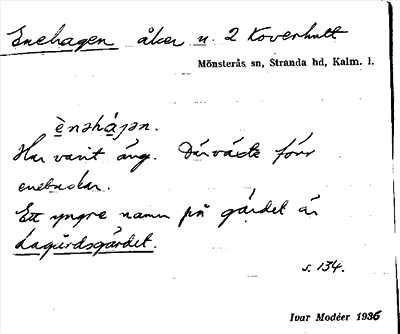 Enehagen åker u. 2 Koverhult
Mönsterås sn, Stranda hd, Kalm. l.
ènəhá̱jən.
Har varit äng. Där växte förr
enebuskar.
Ett yngre namn på gärdet är
Lagårdsgärdet.
s. 134.
Ivar Modéer 1936